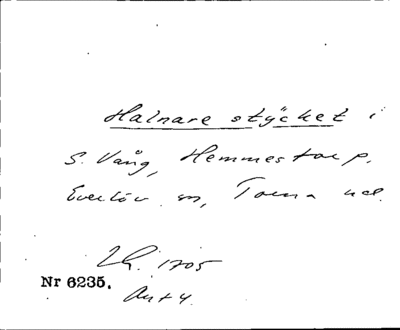 Halnare stÿcket i
S. Vång, Hemmestorp,
Everlöv sn, Torna hd.
Lh. 1705
Nr 6235.
Ant 4.